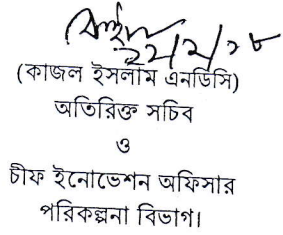 (কাজল ইসলাম এনডিসি)
অতিরিক্ত সচিব
ও
চীফ ইনোভেশন অফিসার
পরিকল্পনা বিভাগ।